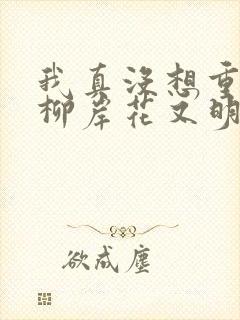 我真没想重
柳岸花又明
欲成尘